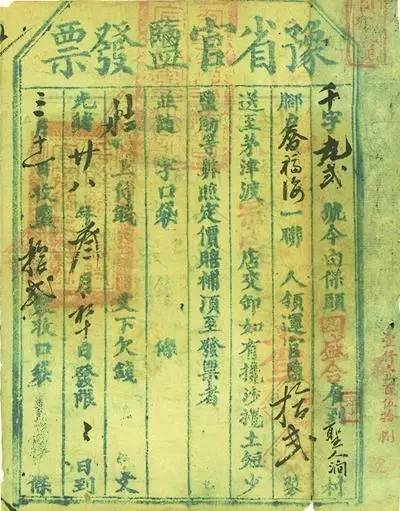 豫省官鹽發票
千字九弍號今由保頭四盛合雇到聖人澗村
脚戶喬福海一聯 人領運官鹽拾弍袋
送至茅津渡 店交卸如有攙沙攪土短少
鹽觔等弊照定價賠補須至發票者
並隨 字口袋 條
上付錢 文下欠錢 文
光緒廿八年叁月初十日發限 日到
三月十一日收鹽拾弍袋收口袋 條